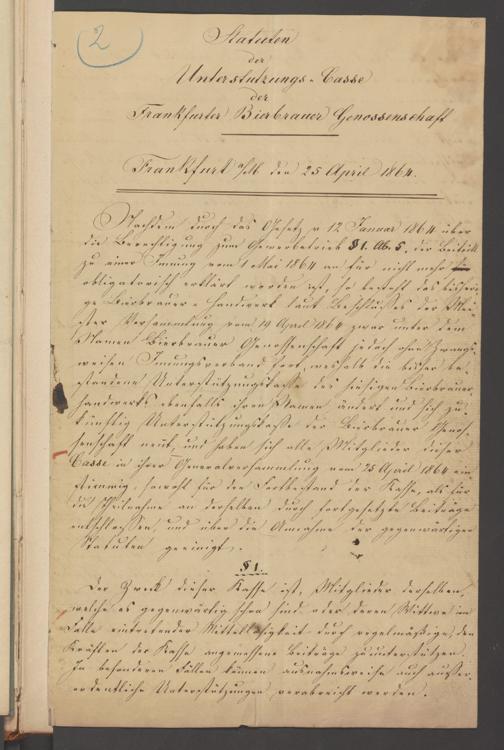 2
Statuten
der
Unterstützungs-Casse
der
Frankfurter Bierbrauer Genossenschaft
Frankfurt a/M den 25 April 1864.
Nachdem durch das Gesetz v 12 Januar 1864 über
die Berechtigung zum Gewerbetrieb §1. Ab. 5, der Beitritt
zu einer Innung vom 1 Mai 1864 an für nicht mehr
obligatorisch erklärt worden ist, so besteht das bisheri-
ge Bierbrauer-Handwerk laut Beschlusses der Mei-
ster Versammlung vom 14 April 1864 zwar unter dem
Namen Bierbrauer Genossenschaft jedoch ohne Zwangs-
weisen Innungsverband fort, weshalb die bisher be-
standene Unterstützungskasse des hiesigen Bierbrauer
handwerks ebenfalls ihren Namen ändert und sich zu-
künftig Unterstützungskasse der Bierbrauer Genos-
senschaft nennt, und haben sich alle Mitglieder dieser
Casse in ihrer Generalversammlung vom 25 April 1864 ein-
stimmig, sowohl für den Fortbestand der Kasse, als für
die Theilnahme an derselben durch fortgesetzte Beiträge
entschlossen und über die Annahme der gegenwärtigen
Statuten geeinigt.
§1.
Der Zweck dieser Kasse ist, Mitglieder derselben,
welche es gegenwärtig schon sind oder deren Wittwe im
Falle eintretender Mittellosigkeit durch regelmäßige, den
Kräften der Kasse angemessene Beiträge zu unterstützen.
In besonderen Fällen können ausnahmsweise auch außer-
ordentliche Unterstützungen verabreicht werden.